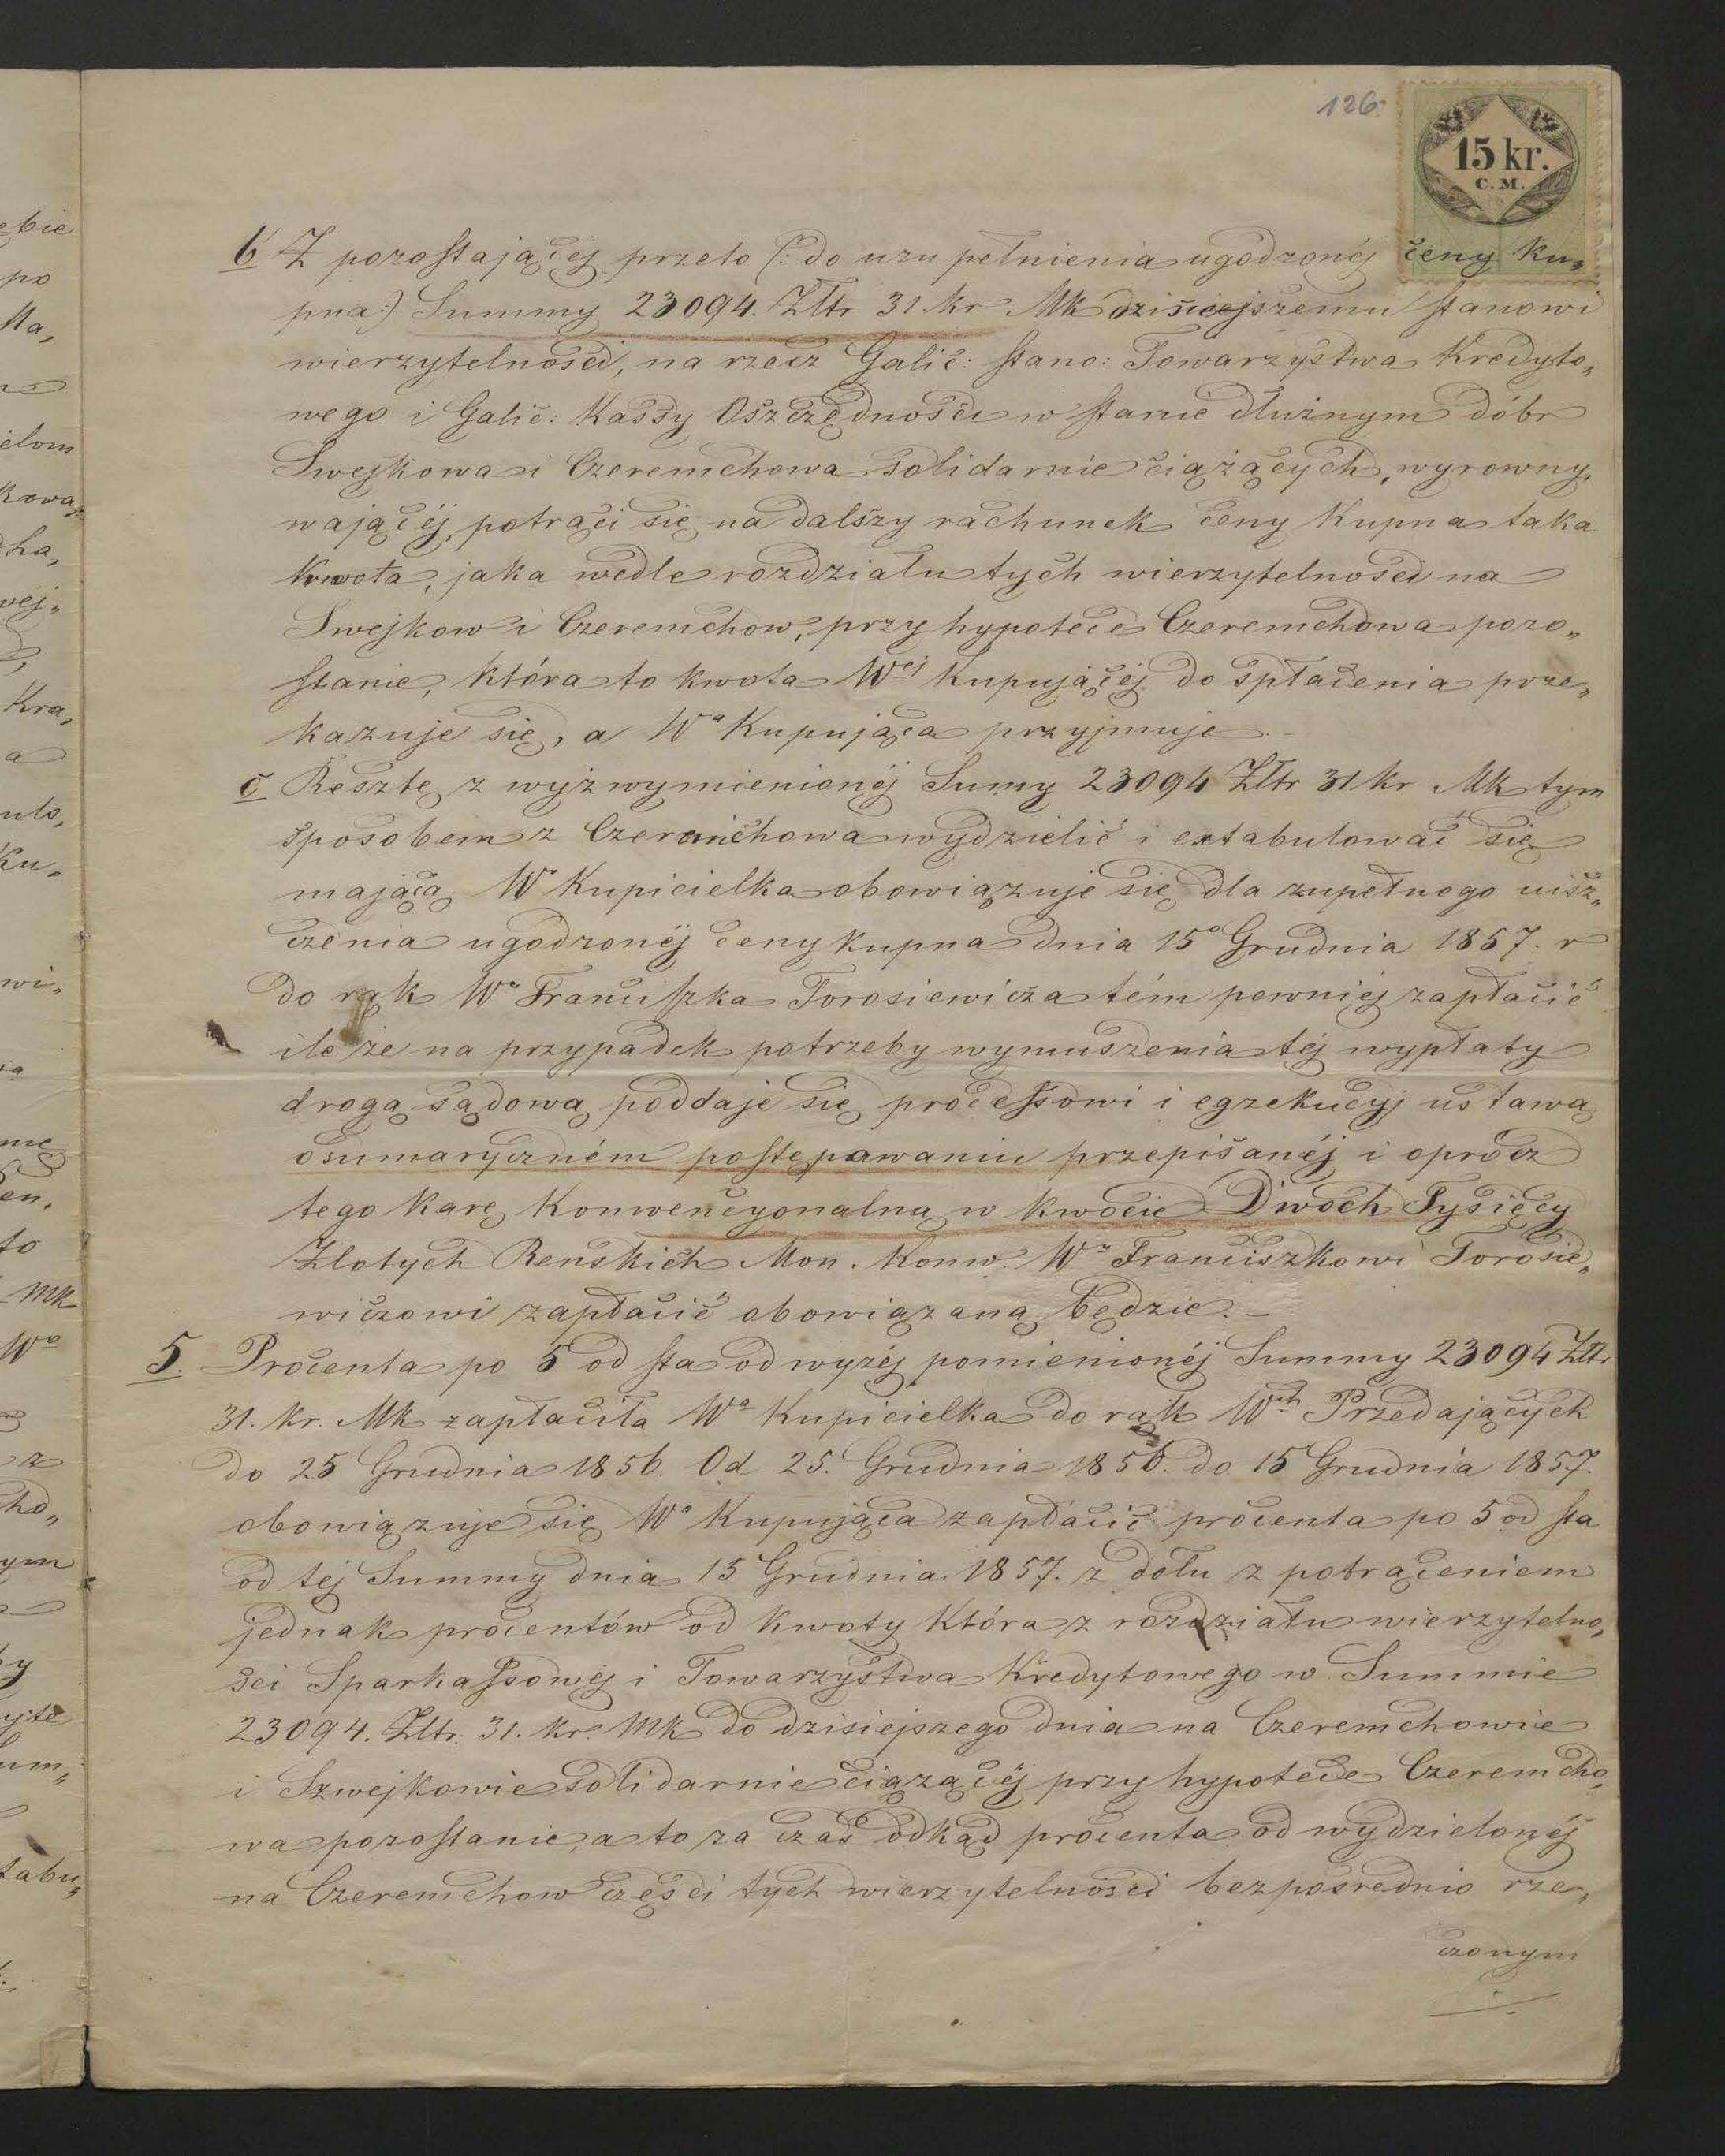 126.
15 kr.
C. M.
b Z pozostającéj przeto (: do uzupełnienia ugodzonéj ceny ku„
pna:) Summy 23094. Złtr 31 kr Mk dzisieejszemu stanowi
wierzytelności, na rzecz Galic: stano: Towarzystwa Kredyto„
wego i Galic: Kassy Oszczędności w stanie dłużnym dóbr
Swejkowa i Czeremchowa solidarnie ciążących, wyrowny„
wającéj, potrąci się na dalszy rachunek ceny Kupna taka
Kwota, jaka wedle rozdziału tych wierzytelności na
Swejkow i Czeremchow, przy hypotece Czeremchowa pozo„
stanie, która to kwota Wej Kupującéj do spłacenia prze„
kazuje się, a Wa Kupująca przyjmuje.–
c Resztę z wyżwymienionéj Sumy 23094 Złtr 31 kr Mk tym
sposobem z Czeremchowa wydzielić i extabulować się
mającą Wa Kupicielka obowiązuje się dla zupełnego uisz„
czenia ugodzonéj ceny kupna dnia 15o Grudnia 1857. r
do rąk Wo Franciszka Torosiewicza tém pewniéj zapłacić
ile że na przypadek potrzeby wymuszenia téj wypłaty
drogą sądową poddaje się processowi i egzekucyj ustawą
o sumaryczném postępawaniu przepisanéj i oprócz
tego karę Konwencyonalną w kwocie Dwóch Tysięcy
Złotych Reńskich Mon. Konw. Wu Franciszkowi Torosie„
wiczowi zapłacić obowiązaną będzie.–
5. Procenta po 5 od sta od wyżéj pomienionéj Summy 23094 Złtr
31. kr. Mk zapłaciła Wa Kupicielka do rąk Wch Przedających
do 25 Grudnia 1856. Od 25. Grudnia 1856. do 15 Grudnia 1857.
obowiązuje się Wa Kupująca zapłacić procenta po 5 od sta
od téj Summy dnia 15 Grudnia 1857. z dołu z potrąceniem
jednak procentów od kwoty Która z rozdziału wierzytelno„
ści Sparkassowéj i Towarzystwa Kredytowego w Summie
23094. Złtr. 31. kr. Mk do dzisiejszego dnia na Czeremchowie
i Szwejkowie solidarnie ciążącéj przy hypotece Czeremcho„
wa pozostanie, a to za czas odkąd procenta od wydzielonéj
na Czeremchow części tych wierzytelności bezpośrednio rze„
czonym